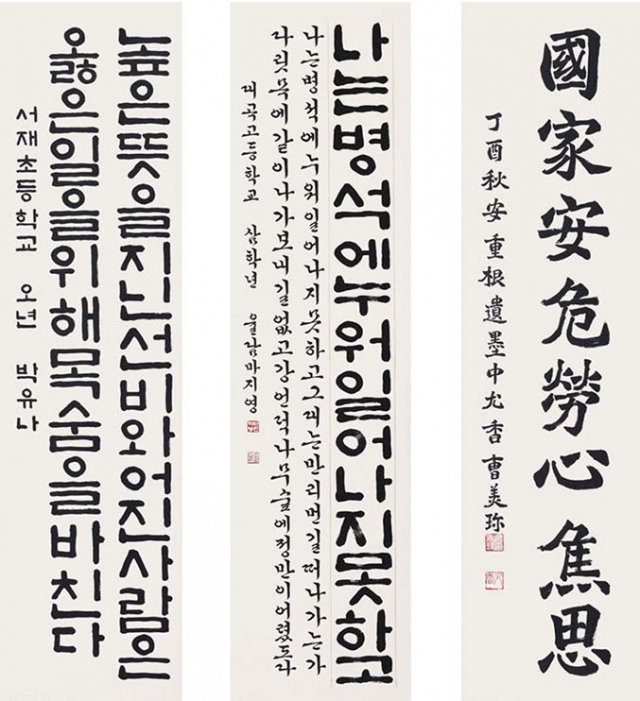 높은뜻을지닌선비와어진사람은
옳은일을위해목숨을바친다
서재초등학교 오년 박유나
나는병석에누워일어나지못하고
나는병석에누워일어나지못하고그대는만리먼길떠나가는가
다릿목에같이나가보내길없고강언덕나무숲에정만이어렸도다
대곡고등학교 삼학년 율남마지영
國家安危勞心焦思
丁酉秋安重根遺墨中允香曹美珎